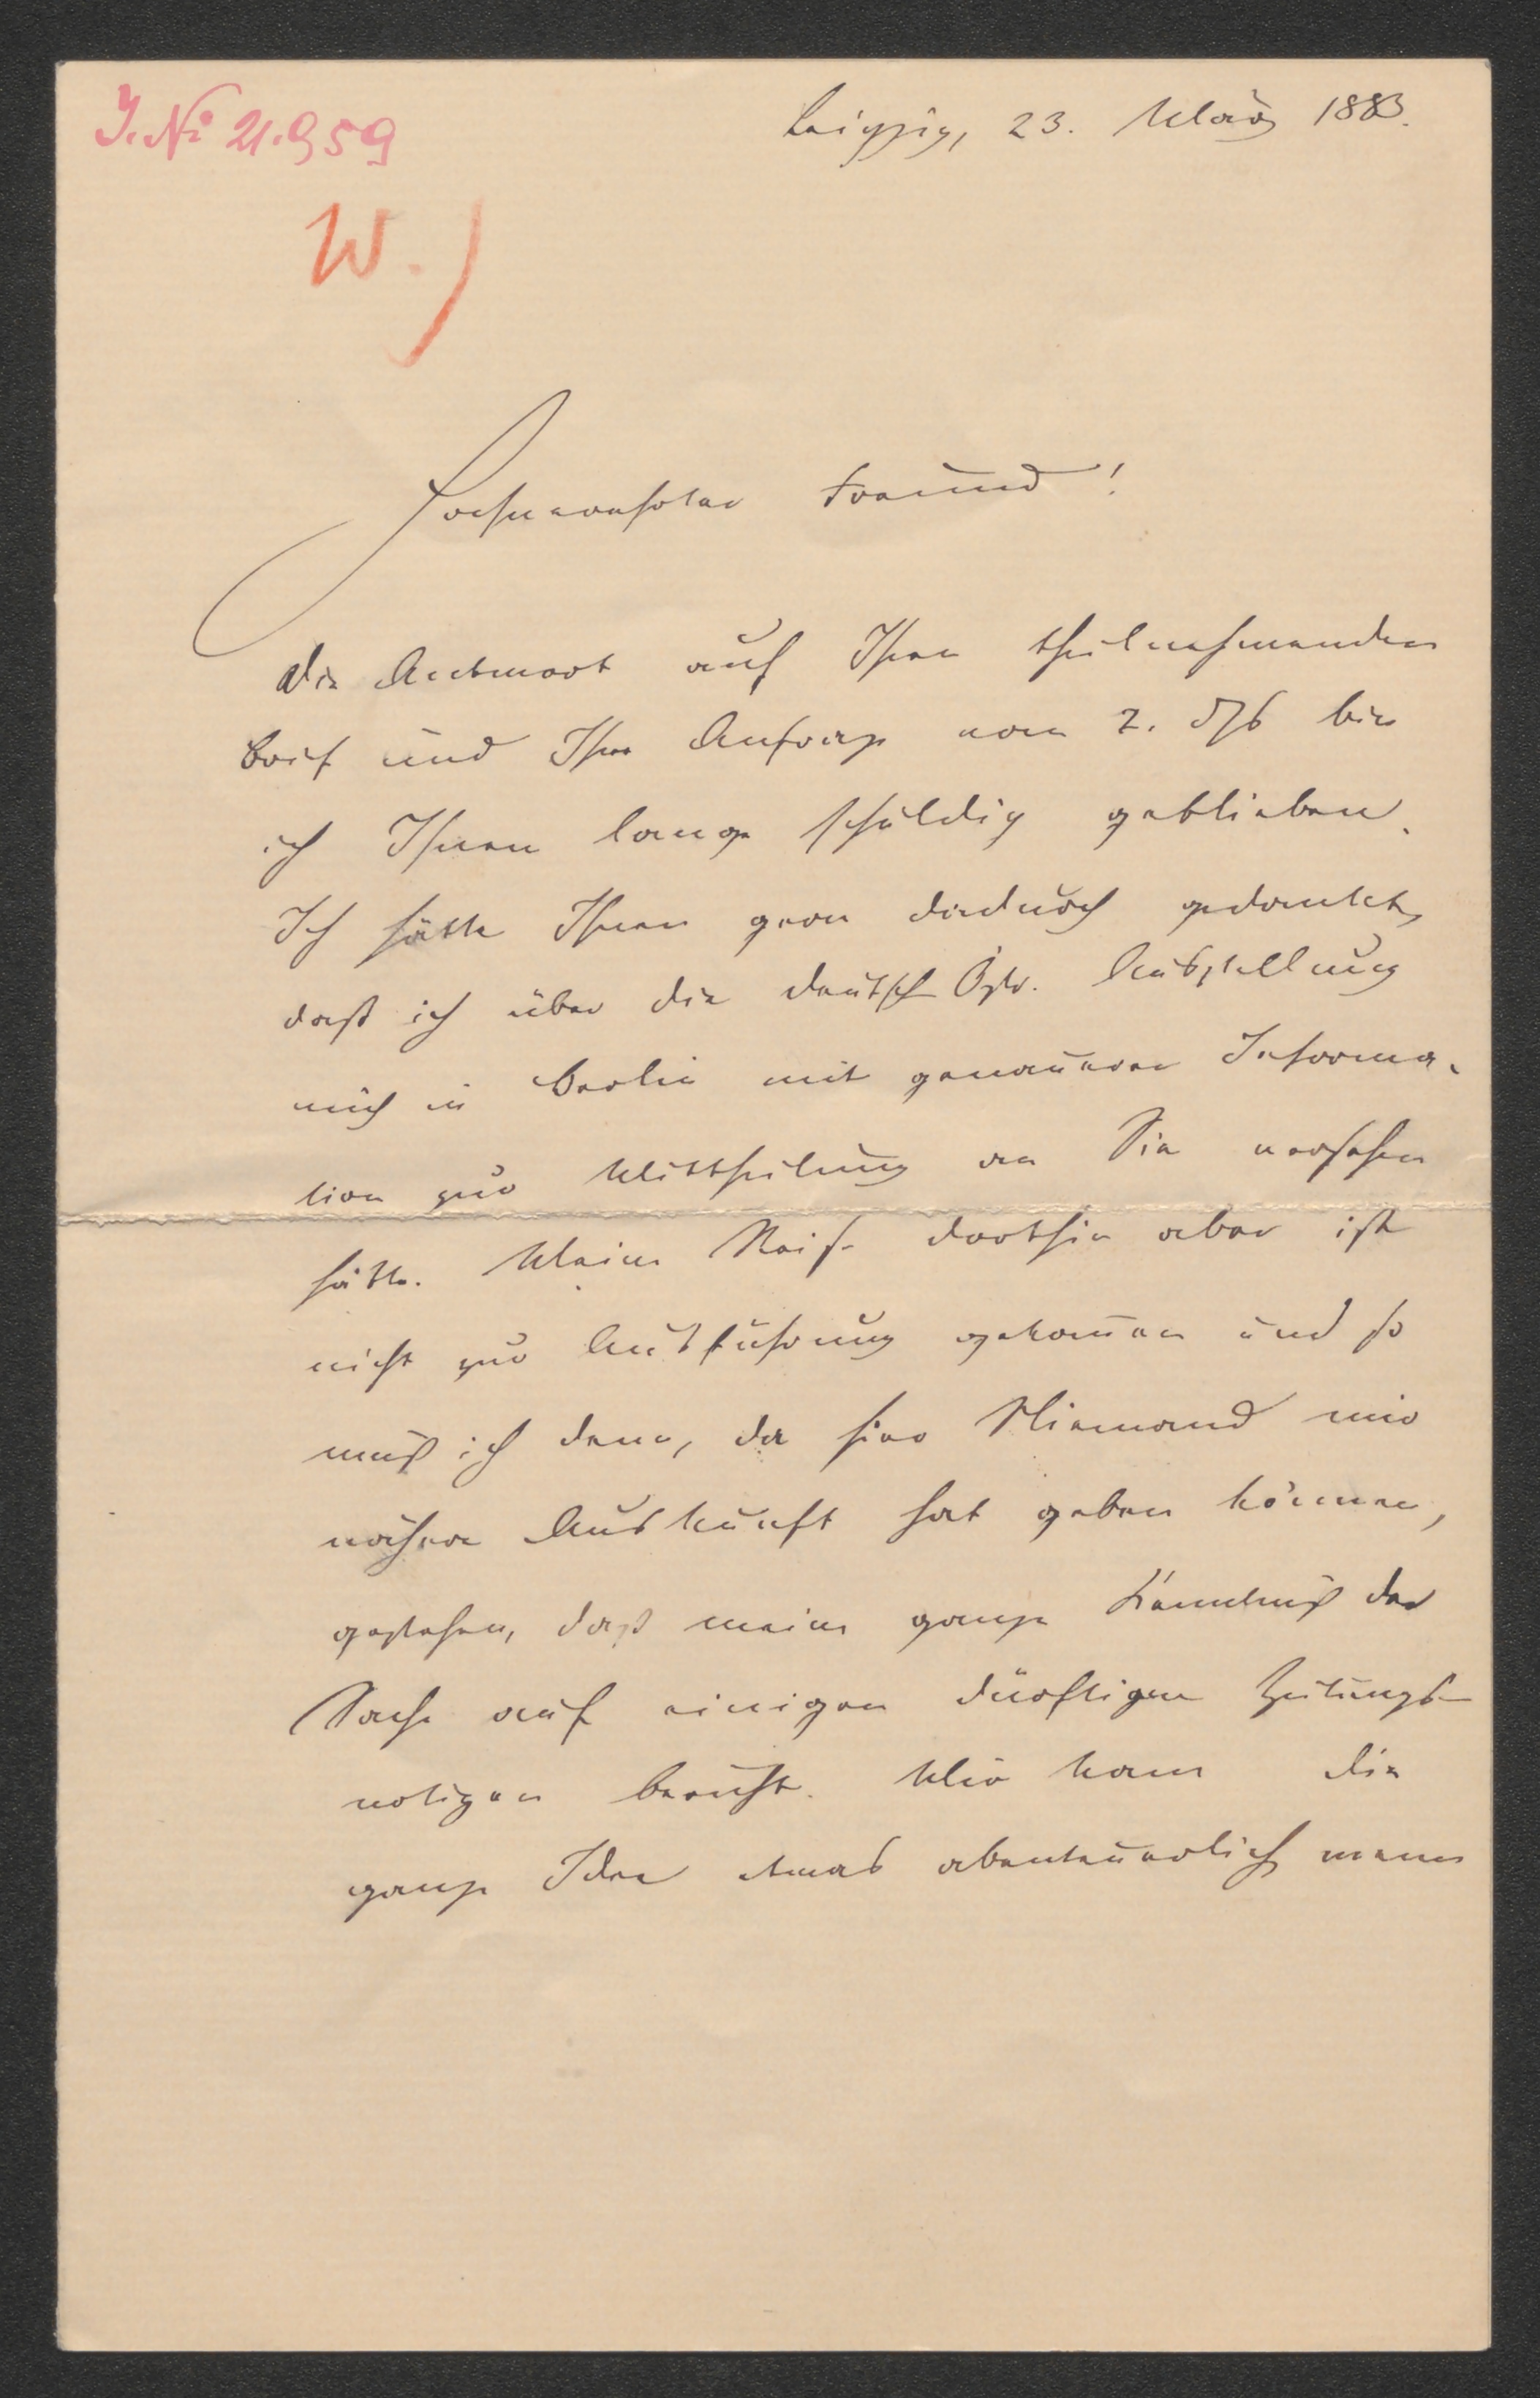 J. No 21.959
Leipzig, 23. März 1883.
W.)
Hochverehrter Freund!
Die Antwort auf Ihren theilnehmenden
Brief und Ihre Anfrage vom 2. dss bin
ich Ihnen lange schuldig geblieben.
Ich hätte Ihnen gern dadurch gedankt,
daß ich über die deutsch Östr. Ausstellung
mich in Berlin mit genauerer Informa-
tion zur Mittheilung an Sie versehen
hätte. Meine Reise dorthin aber ist
nicht zur Ausführung gekom̅en und so
muß ich denn, da hier Niemand mir
nähere Auskunft hat geben können,
gestehen, daß meine ganze Kenntniß der
Sache auf einigen dürftigen Zeitungs-
notizen beruht. Mir kam die
ganze Idee etwas abenteuerlich wenn